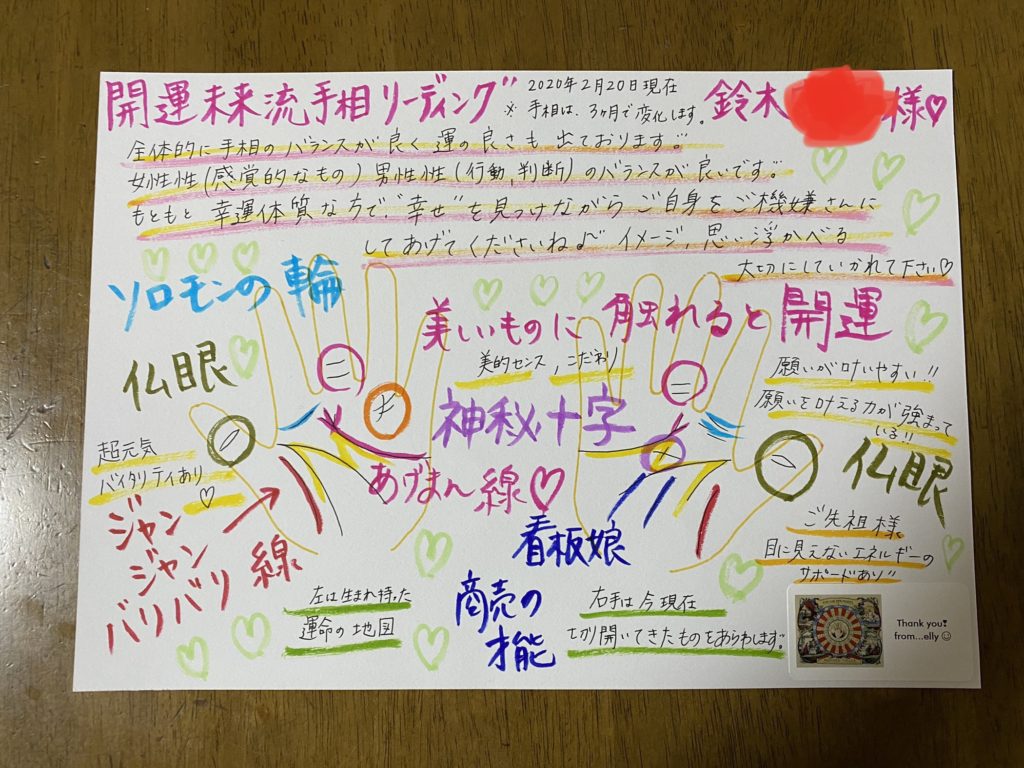 開運未来流手相リーディング
2020年2月20日現在
※ 手相は、3ヶ月で変化します。
鈴木
様♡
全体的に手相のバランスが良く運の良さも出ております。
女性性(感覚的なもの)男性性(行動,判断)のバランスが良いです。
もともと幸運体質な方で、"幸せ"を見つけながらご自身をご機嫌さんに
してあげてくださいね♪ イメージ,思い浮かべる
大切にしていかれて下さい♡
ソロモンの輪
美しいものに触れると開運
美的センス,こだわり
仏眼
願いが叶いやすい!!
願いを叶える力が強まって
いる!!
神秘十字
超元気
バイタリティあり
♡
あげまん線♡
仏眼
ジャン
ジャン
バリバリ線
看板娘
ご先祖様
目に見えないエネルギーの
サポートあり!!
左は生まれ持った
運命の地図
商売の
才能
右手は今現在
切り開いてきたものをあらわします。
Thank you❣
from...elly ☺